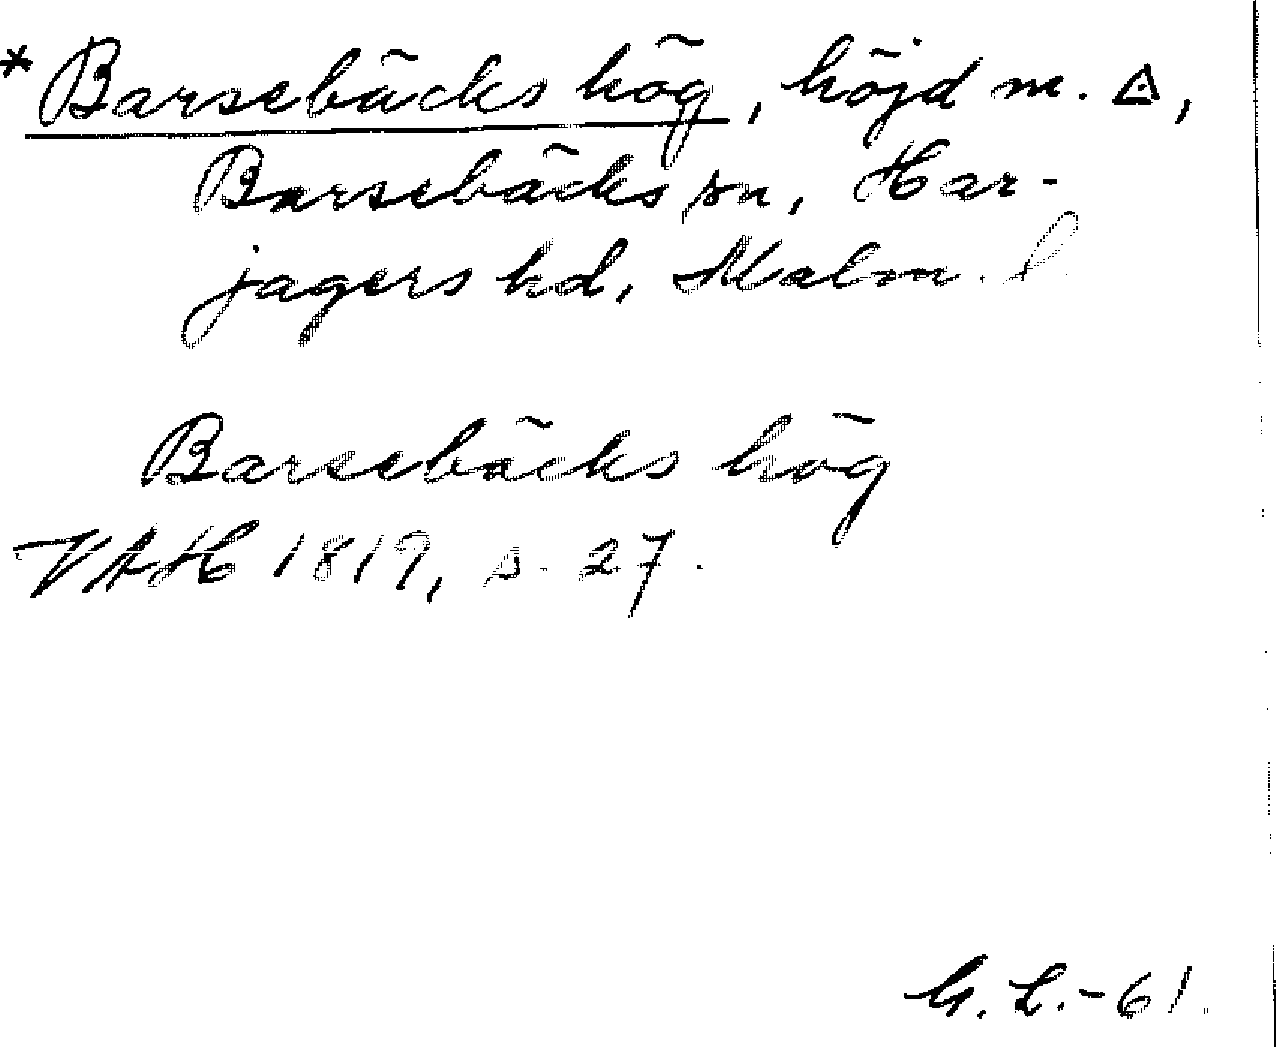 *Barsebäcks hög, höjd m. △,
Barsebäcks sn, Har-
jagers hd, Malm. l.
Barsebäcks hög
VAH 1819, s. 27.
G. L. - 61.